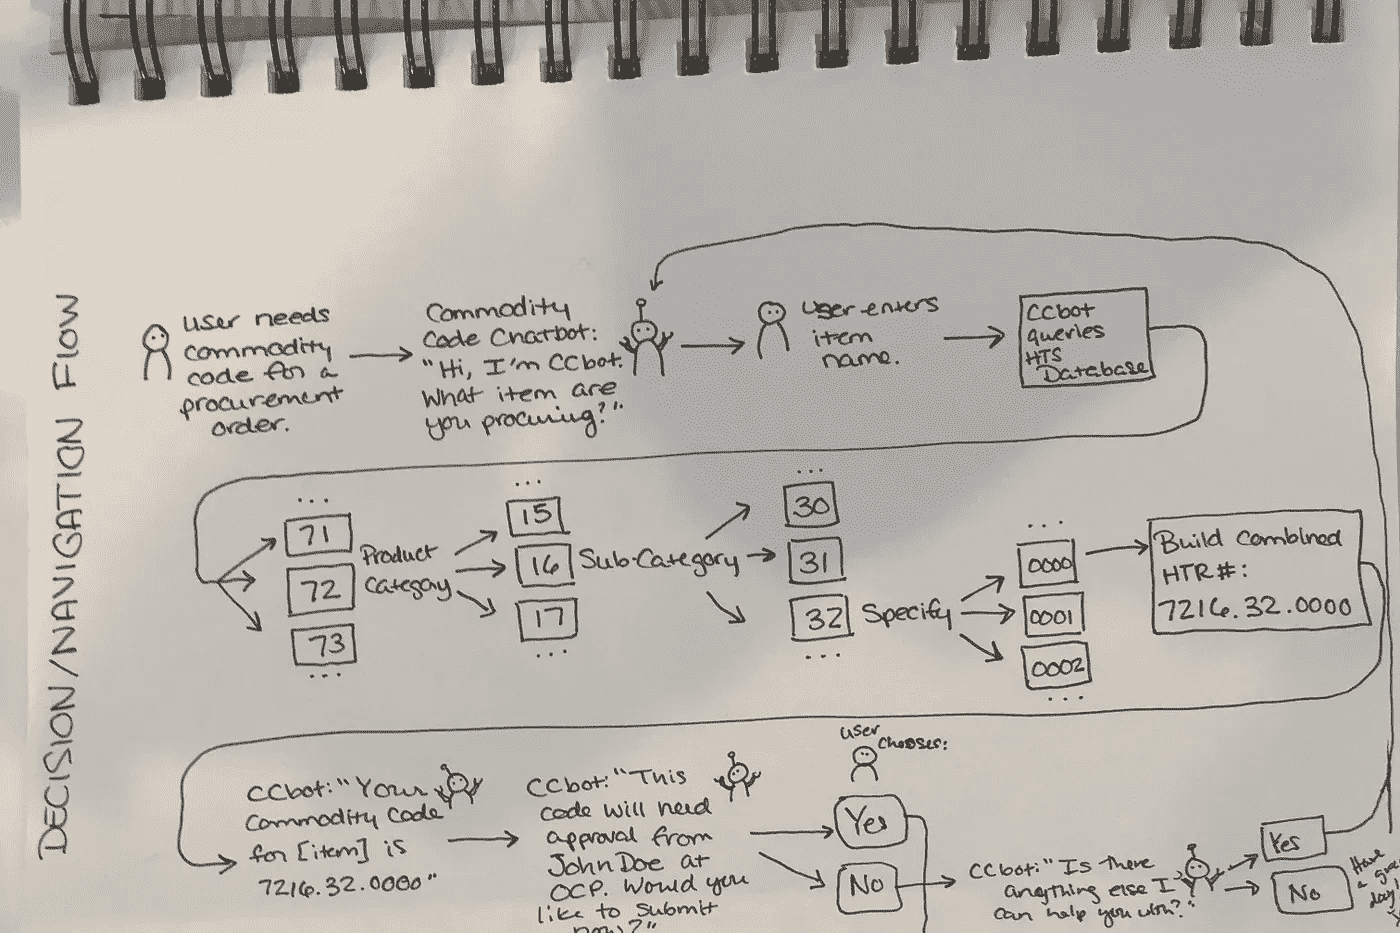 DECISION/NAVIGATION FLOW
user needs
commodity
code for a
procurement
order.
Commodity
Code Chatbot:
"Hi, I'm CCbot.
What item are
you procuring?"
user enters
item
name.
CCbot
queries
HTS
Database
...
71
72
73
...
Product
Category
...
15
16
17
...
Sub-Category
...
30
31
32
...
Specify
...
0000
0001
0002
...
Build Combined
HTR#:
7216.32.0000
CCbot: "Your
Commodity Code
for [item] is
7216.32.0000"
CCbot: "This
code will need
approval from
John Doe at
OCP. Would you
like to submit
now?"
user
chooses:
Yes
No
CCbot: "Is there
anything else I
can help you with?"
Yes
No
Have
a
day!